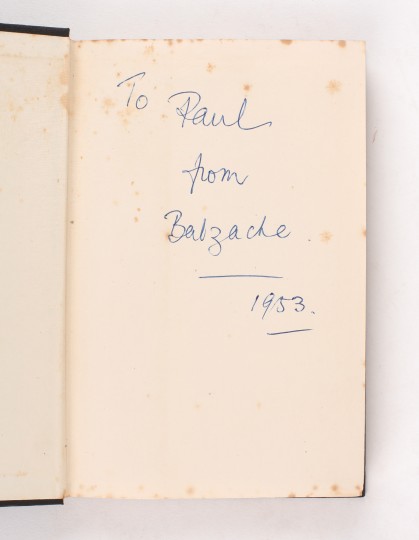 To Paul
from
Babzache.
1953.